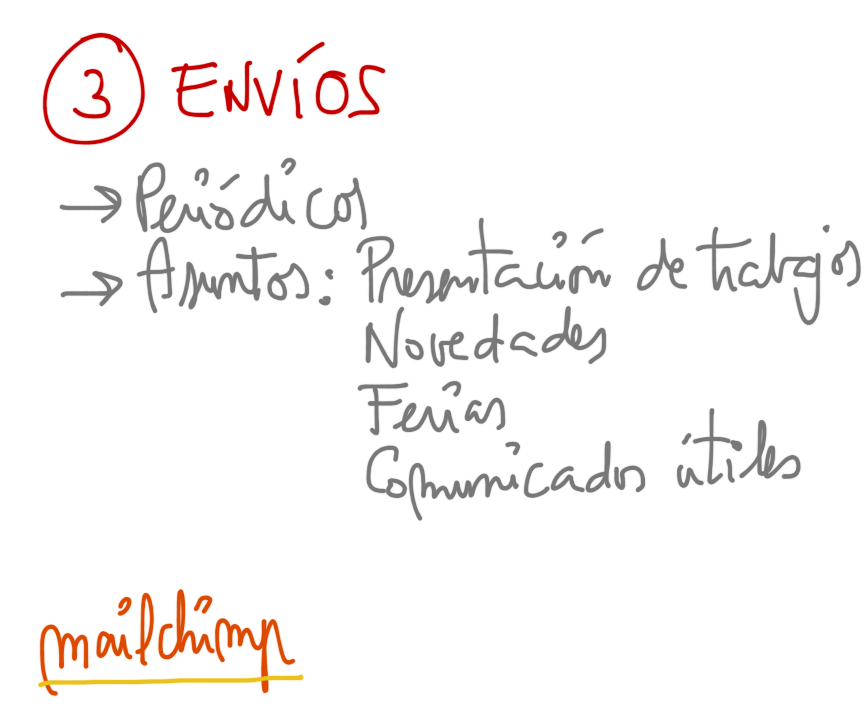 3 ENVÍOS
→ Periódicos
→ Asuntos: Presentación de trabajos
Novedades
Ferias
Comunicados útiles
mailchimp